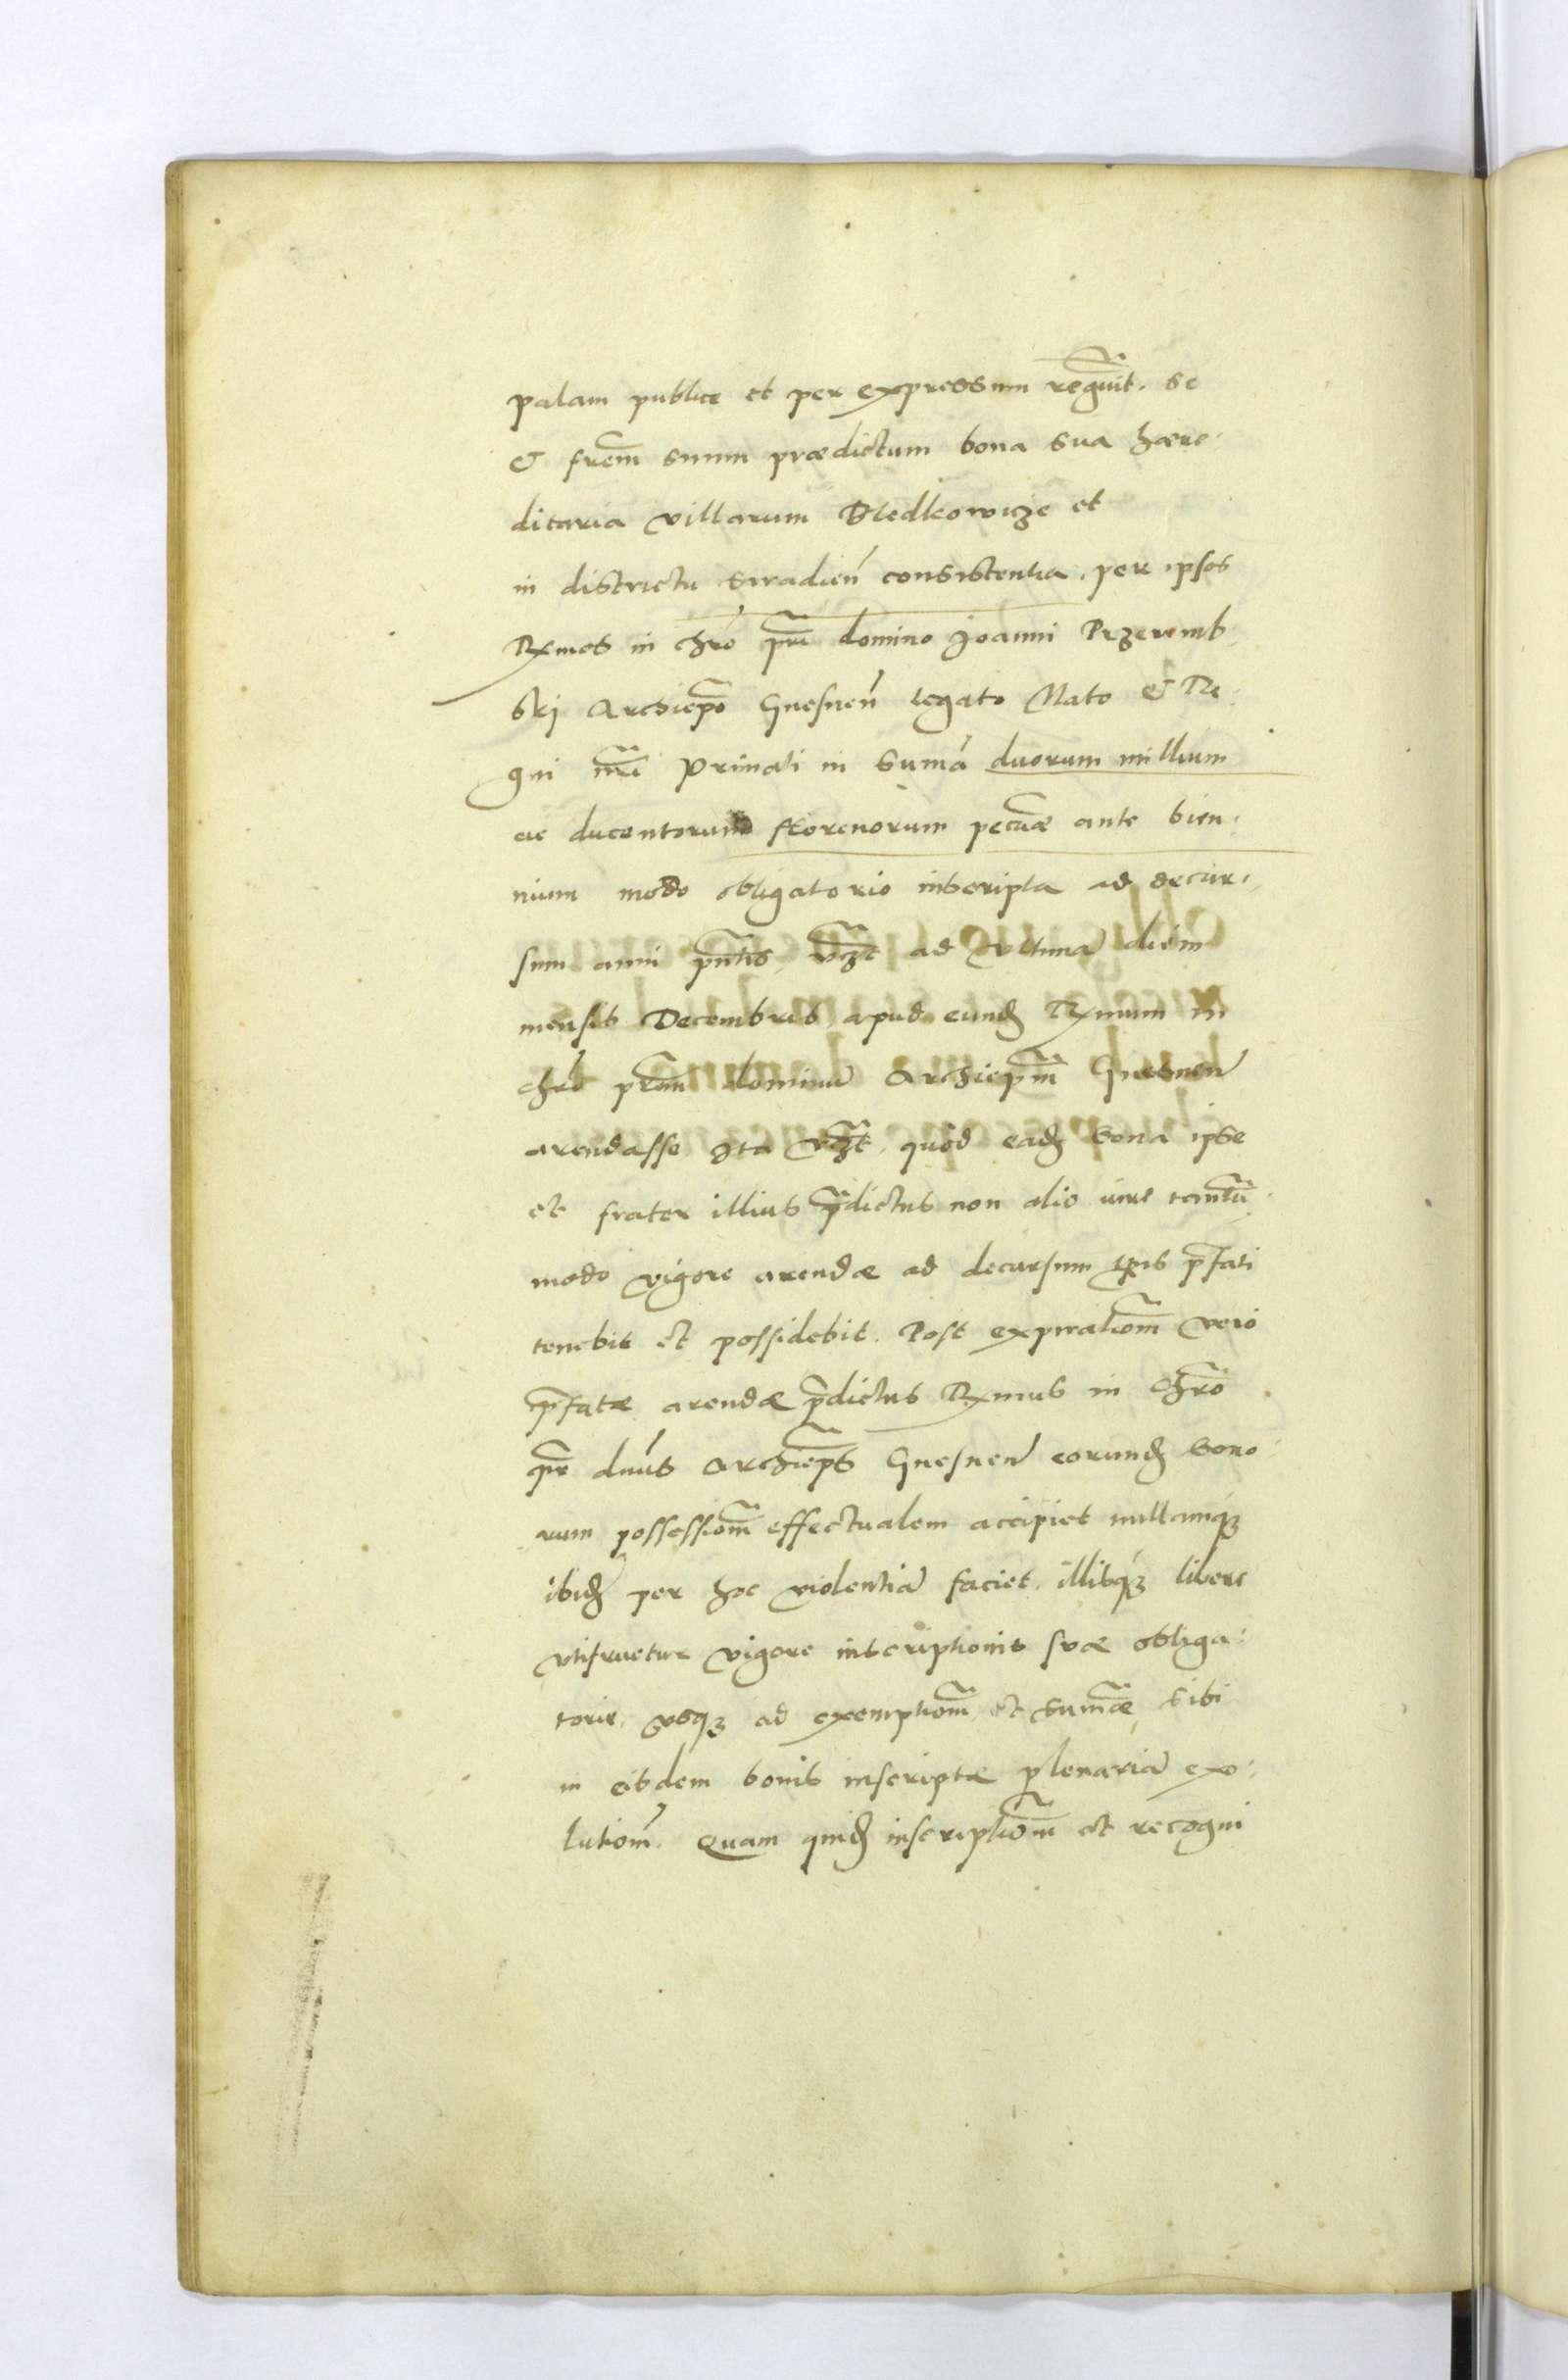 palam publice et per expressum regnuit. se
& frem suum prædictum bona sua hære
ditaria villarum et
in districtu siradien consistentia, per ipsos
Rxmos in chro pri domino Joanni Przeremb
skj Archiepo Gnesnen legato Nato & Re
gni nri Primati in suma duorum millium
ac ducentorum florenorum pecuæ ante bien
nium modo obligatorio inscripta ad decur
sum anni pntis, vzt ad vltima diem
mensis Decembris apud eund Rxmum in
chro prem dominu Archiepm Gnesnen
arendasse. Ita vzt, quod ead bona ipse
et frater illius pdictus non alio iure tantu
modo vigore arendæ ad decursum tpis pfati
tenebit et possidebit. Post expirationm vero
pfatæ arendæ pdictus Rxmus in Chro
pr dnus Archieps Gnesnen eorund bono
rum possessionm effectualem accipiet nullamq
ibid per hoc violentia faciet. illisq libere
vtifruetur vigore inscriptionis suæ obliga
toriæ, vsq ad exemptionm et summæ sibi
in eisdem bonis inscriptæ plenaria exo
lutionm. Quam quid inscriptionm et recogni